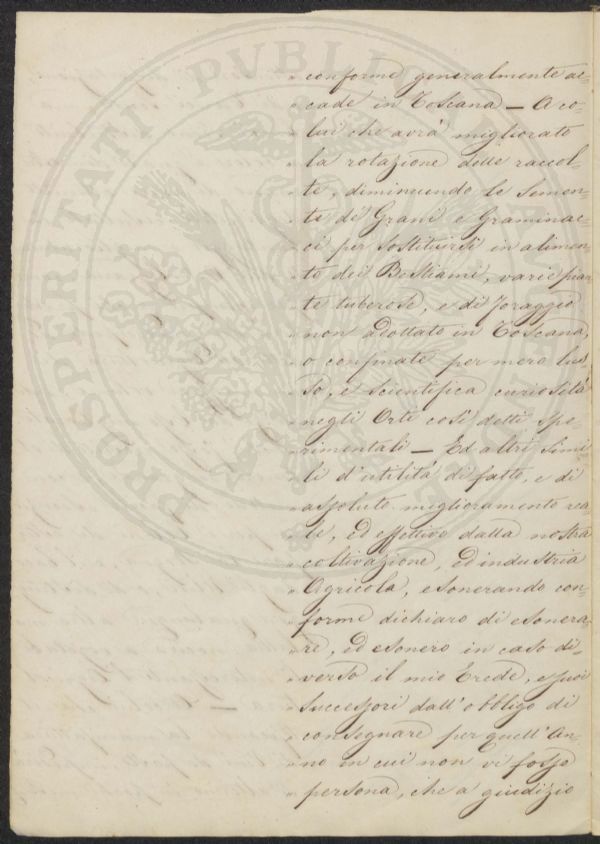 PROSPERITATI PVBLICAE
„ conforme generalmente ac=
„ cade in Toscana — A co=
„ lui che avrà migliorato
„ la rotazione delle raccol=
„ te, diminuendo le Semen=
„ te di Grani e Graminac=
„ ci per sostituirsi in alimen=
„ to dei Bestiami, varie pian=
„ te tuberose, e di Foraggio
„ non adottate in Toscana,
„ o confinate per mero lus=
„ so, e scientifica curiosità
„ negli Orti così detti spe=
„ rimentali — Ed altri simi=
„ li d'utilità di fatto, e di
„ assoluto miglioramento rea=
„ le, ed effettivo dalla nostra
„ coltivazione, ed industria
„ Agricola, esonerando con=
„ forme dichiaro di esonera=
„ re, ed esonero in caso di=
„ verso il mio Erede, e suoi
„ successori dall'obbligo di
„ consegnare per quell'An=
„ no in cui non vi fosse
„ persona, che a giudizio